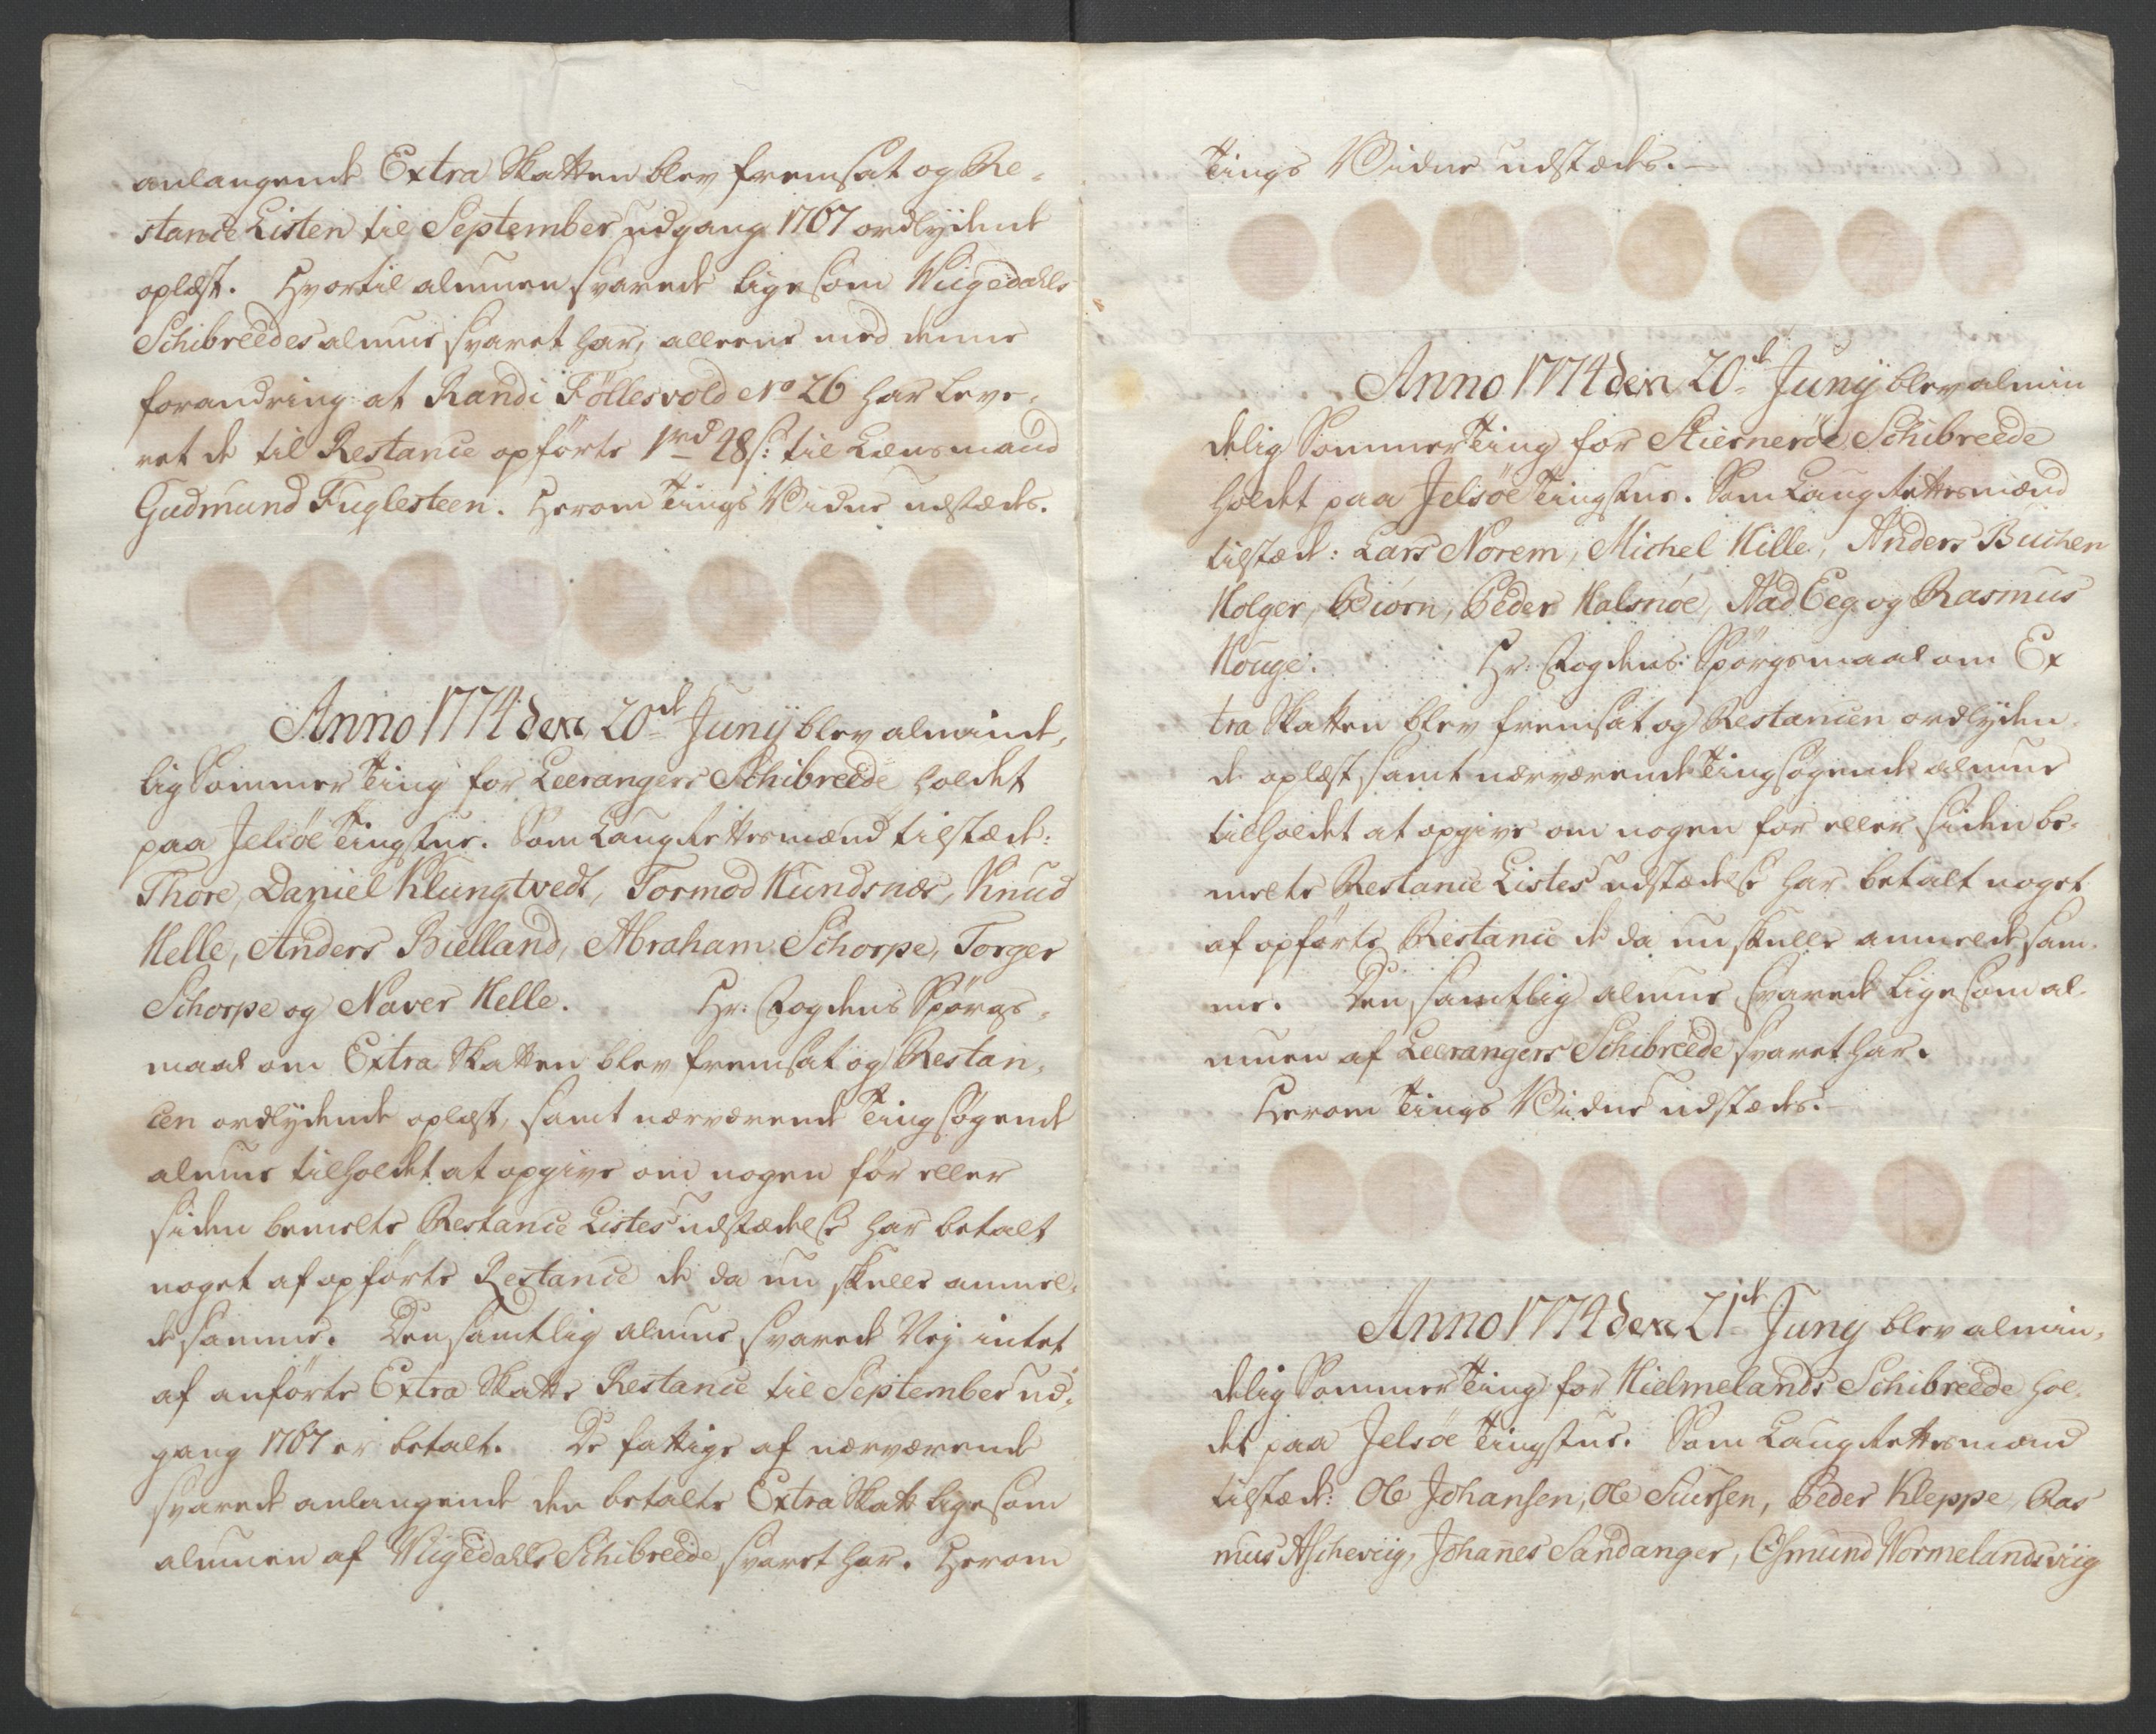 anlangende Extra Skatten blev fremsat og Re-
stance Listen til September udgang 1767 ordlydende
oplæst. Hvortil almuen svarede ligesom Wigedahls
Schibreedes almue svaret har, alleene med denne
forandring at Randi Föllesvold No 26 har leve-
ret de til Restance opförte 1rd 48 s: til Lænsmand
Gudmund Fuglesteen. Herom Tings Vidne udstædes.
Anno 1774 den 20de Junij blev almind-
lig Sommer Ting for Leerangers Schibreede holdet
paa Jelsöe Tingstue. Som Laugrettesmænd tilstæde:
Thore, Daniel Klungtvedt, Tormod Hundsnæs, Knud
Helle, Anders Bielland, Abraham Schorpe, Torger
Schorpe og Naver Helle. Hr: Fogdens Spörgs-
maal om Extra Skatten blev fremsat og Restan-
cen ordlydende oplæst, samt nærværende Tingsögende
almue tilholdet at opgive om nogen för eller
siden bemelte Restance Listes udstædelse har betalt
noget af opförte Restance de da nu skulle anmel-
de samme. Den samtlig almue svarede Nej intet
af anförte Extra Skatte Restance til September ud-
gang 1767 er betalt. De fattige af nærværende
svarede anlangende den betalte Extra Skatt ligesom
almuen af Wigedahls Schibreede svaret har. Herom
Tings Vidne udstædes.-
Anno 1774 den 20de Junij blev almin
delig Sommer Ting for Stiernerøe Schibreede
holdet paa Jelsöe Tingstue. Som Laugrettesmænd
tilstæde: Lars Norem, Michel Hille, Anders Buchen
Holger, Biörn, Peder Halsnöe, Aad Eeg og Rasmus
Houge. Hr: Fogdens Spörgsmaal om Ex
tra Skatten blev fremsat og Restancen ordlyden
de oplæst samt nærværende Tingsögende almue
tilholdet at opgive om nogen för eller siden be-
melte Restance Listes udstædelse har betalt noget
af opförte Restance de da nu skulle anmelde sam-
me. Den samtlig almue svarede ligesom al-
muen af Leerangers Schibreede svaret har.
Herom Tings Vidne udstædes.-
Anno 1774 den 21de Juny blev almin-
delig Sommer Ting for Hielmelands Schibreede hol-
det paa Jelsöe Tingstue. Som Laugrettesmænd
tilstæde: Ole Johansen, Ole Siursen, Peder Kleppe, Ras
mus Ascheviig, Johanes Sandanger, Osmund Wormelandsviig